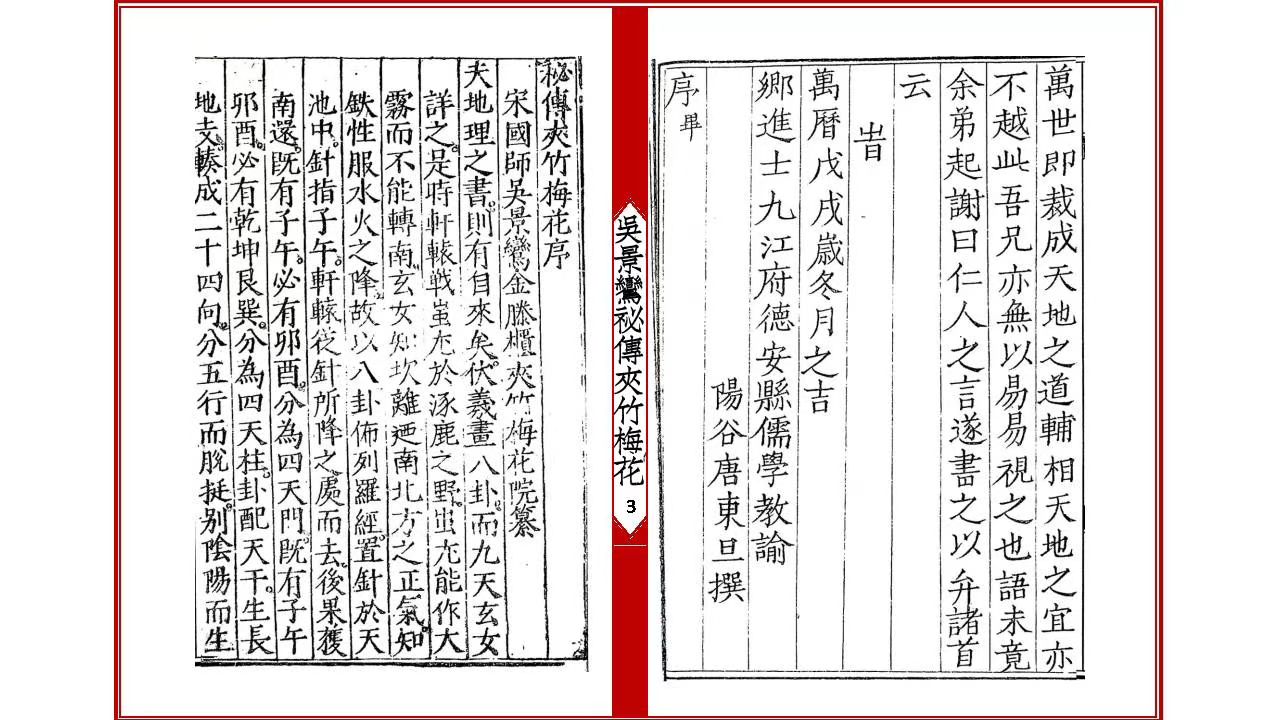 萬世即裁成天地之道輔相天地之宜亦
不越此吾兄亦無以易易視之也語未竟
余弟起謝曰仁人之言遂書之以弁諸首
云
旹
萬曆戊戌歲冬月之吉
鄉進士九江府德安縣儒學教諭
陽谷唐東旦撰
序畢
吳景鸞祕傳夾竹梅花
3
秘傳夾竹梅花序
宋國師吳景鸞金縢櫃夾竹梅花院纂
夫地理之書。則有自來矣。伏羲畫八卦。而九天玄女
詳之。是時軒轅戰蚩尤於涿鹿之野。蚩尤能作大
霧而不能轉南。玄女知坎離迺南北方之正氣。知
鉄性服水火之降。故以八卦佈列羅經。置針於天
池中。針指子午。軒轅從針所降之處而去。後果獲
南還。既有子午。必有卯酉。分為四天門。既有子午
卯酉。必有乾坤艮巽。分為四天柱。卦配天干。生長
地支。輳成二十四向。分五行而脫挺。别陰陽而生